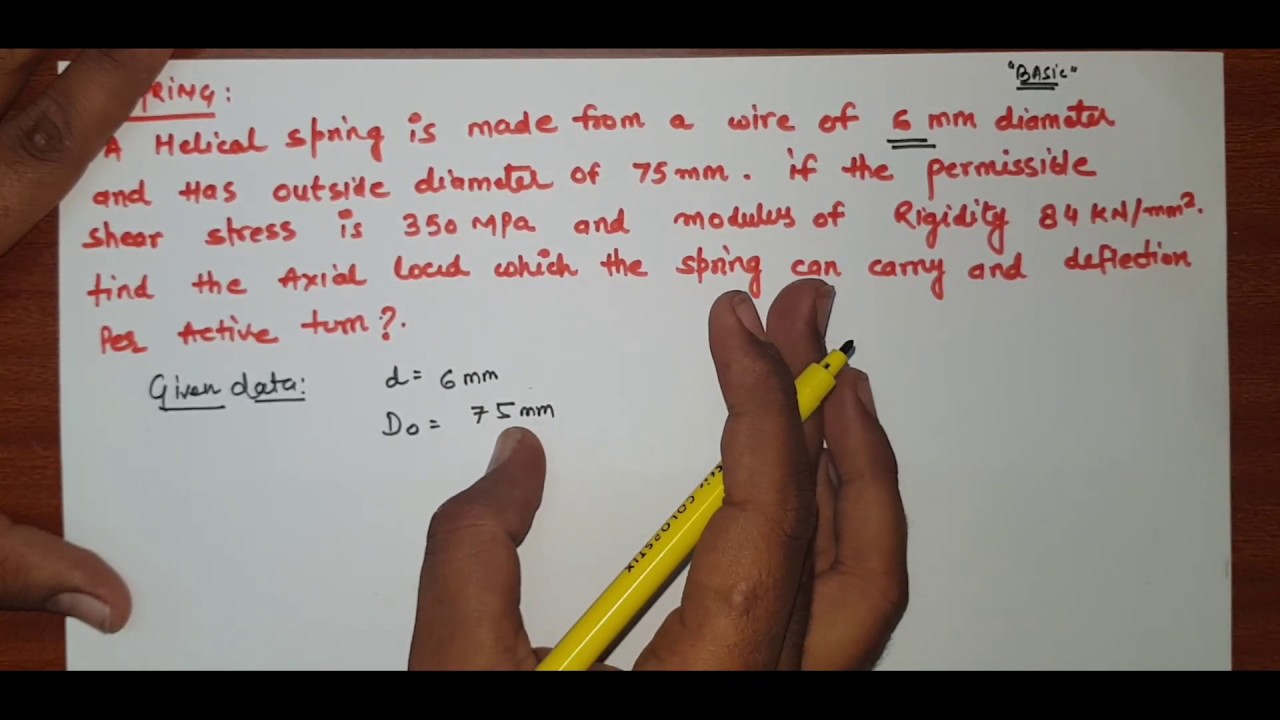 "BASIC"
SPRING:
A Helical spring is made from a wire of 6 mm diameter
and Has outside diameter of 75 mm. if the permissible
shear stress is 350 MPa and modulus of Rigidity 84 KN/mm².
find the Axial Load which the spring can carry and deflection
Per Active turn?.
Given data: d = 6 mm
Do = 75 mm
COLORSTIX